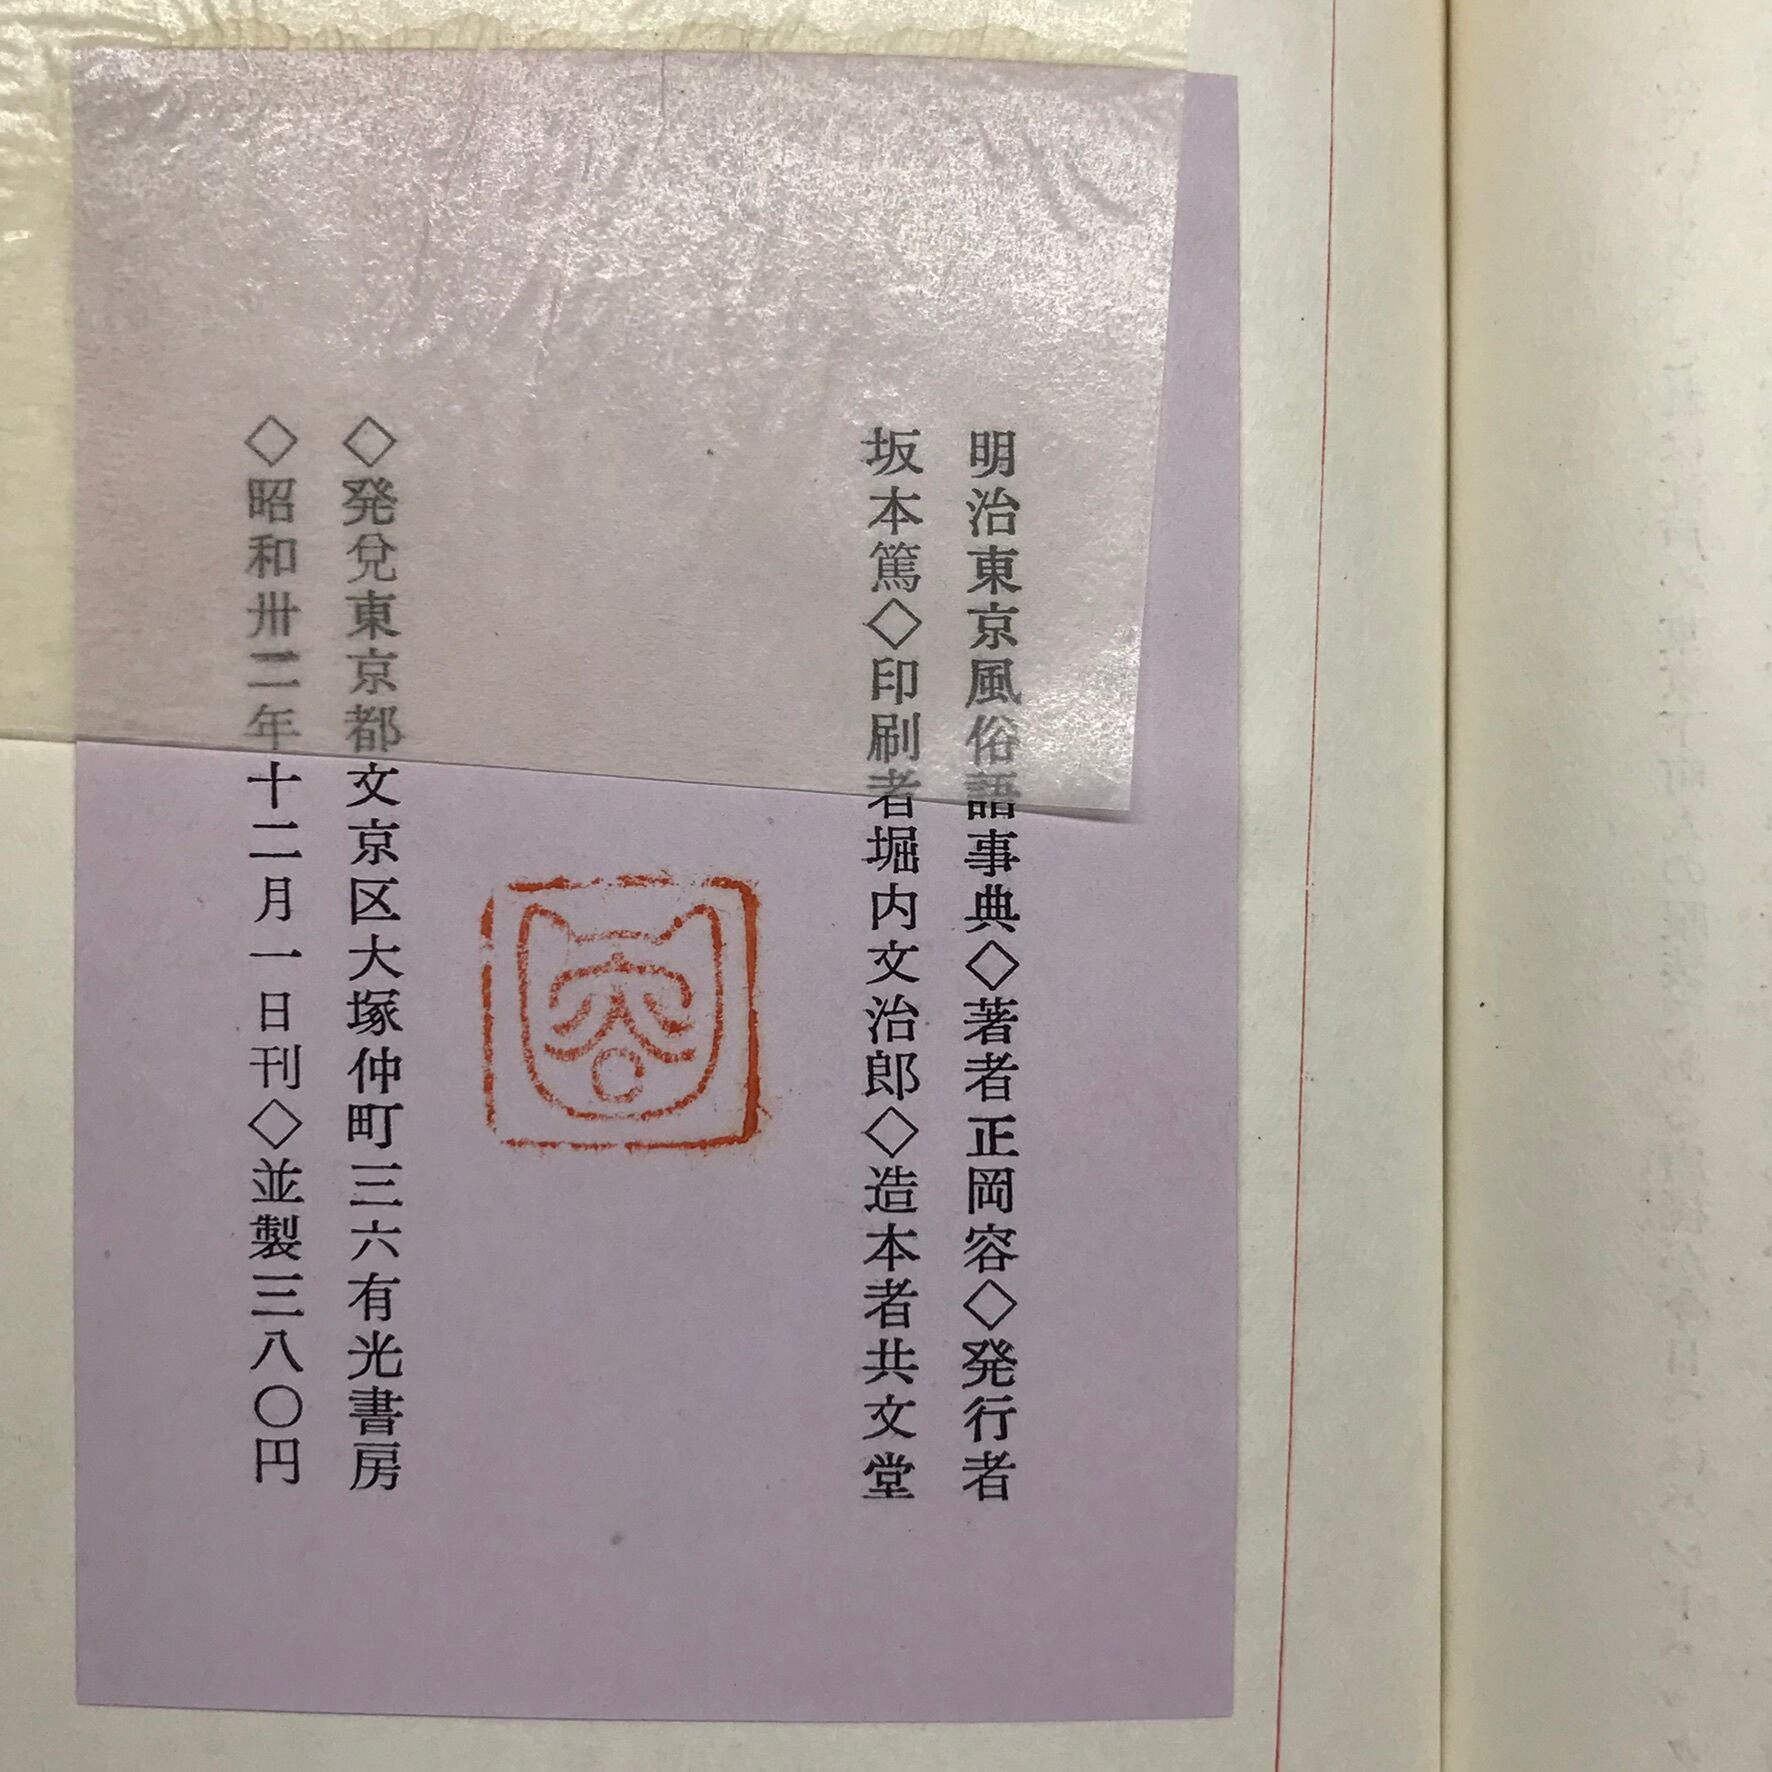 明治東京風俗語事典◇著者正岡容◇発行者
坂本篤◇印刷者堀内文治郎◇造本者共文堂
容
◇発兌東京都文京区大塚仲町三六有光書房
◇昭和卅二年十二月一日刊◇並製三八〇円